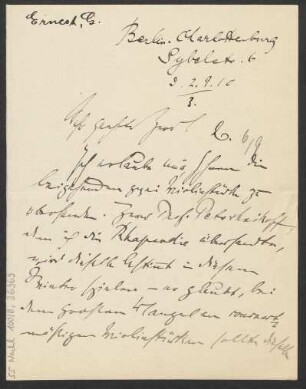 Ernest, G.
Berlin-Charlottenburg
Sybelstr. 6
2. 9. 10
Sehr geehrter Herr!
Ich erlaube mir, Ihnen die
beigehenden zwei Violinstücke zu
übersenden. Herr Prof. Petschnikoff,
dem ich die Rhapsodie übersandte,
wird dieselbe bestimmt in diesem
Winter spielen – er glaubt, bei
dem großen Mangel an
mäßigen Violinstücken sollte dieselbe